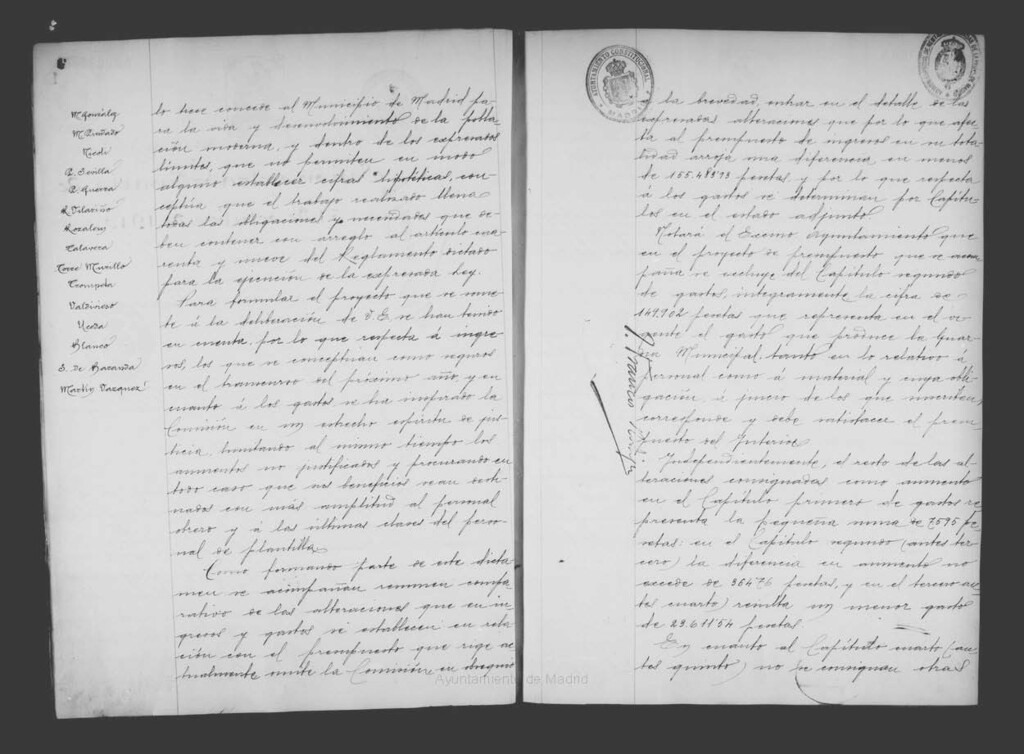 M. González
Nicoli
P. Sevilla
Rozalem
Talavera
Torre Murillo
Trompeta
Valdivieso
Uceda
Blanco
S. de Baranda
Martín Vázquez
to trece concede al Municipio de Madrid pa-
ra la vida y desenvolvimiento de la pobla-
ción moderna, y dentro de los expresados
límites, que no permiten en modo
alguno establecer cifras hipotéticas, con-
ceptúa que el trabajo realizado llena
todas las obligaciones y necesidades que de-
ben contener con arreglo al artículo cua-
renta y nueve del Reglamento dictado
para la ejecución de la expresada ley.
Para formular el proyecto que se some-
te á la deliberación de V.E. se han tenido
en cuenta por lo que respecta á ingre-
sos, los que se conceptúan como seguros
en el transcurso del próximo año, y en
cuanto á los gastos se ha inspirado la
Comisión en un estrecho espíritu de jus-
ticia, limitando al mismo tiempo los
aumentos no justificados y procurando en
todo caso que los beneficios sean desti-
nados con más amplitud al personal
obrero y á las últimas clases del perso-
nal de plantilla.
Como formando parte de este dicta-
men se acompañan resumen compa-
rativo de las alteraciones que en in-
gresos y gastos se establecen en rela-
ción con el presupuesto que rige ac-
tualmente omite la Comisión en obsequio
AYUNTAMIENTO CONSTITUCIONAL
MADRID
á la brevedad, entrar en el detalle de las
expresadas alteraciones que por lo que afec-
ta al presupuesto de ingresos en su tota-
lidad arroja una diferencia en menos
de 155.488'98 pesetas y por lo que respecta
á los gastos se determinan por Capítu-
los en el estado adjunto.
Notará el Excmo Ayuntamiento que
en el proyecto de presupuesto que se acom-
paña se excluye del Capítulo segundo
de gastos, íntegramente la cifra de
149.902 pesetas que representa en el vi-
gente el gasto que produce la Guar-
dia Municipal, tanto en lo relativo á
personal como á material y cuya obli-
gación á juicio de los que suscriben,
corresponde y debe satisfacer el presu-
puesto del Interior.
Independientemente, el resto de las al-
teraciones consignadas como aumento
en el Capítulo primero de gastos re-
presenta la pequeña suma de 7595 pe-
setas: en el Capítulo segundo (antes ter-
cero) la diferencia en aumento no
excede de 36476 pesetas, y en el tercero (an-
tes cuarto) resulta un menor gasto
de 29.611'54 pesetas.
En cuanto al Capítulo cuarto (an-
tes quinto) no se consignan otras
Ayuntamiento de Madrid